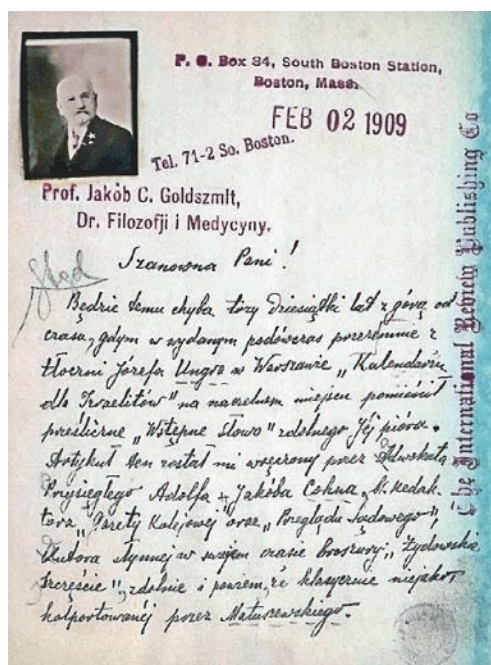 P. O. Box 34, South Boston Station,
Boston, Mass.
FEB 02 1909
Tel. 71-2 So. Boston.
Prof. Jakób C. Goldszmit,
Dr. Filozofji i Medycyny.
The International Review Publishing Co
Szanowna Pani!
Będzie temu chyba trzy dziesiątki lat z górą od
czasu, gdym w wydanym podówczas przezemnie z
tłoczni Józefa Ungra w Warszawie „Kalendarzu
dla Izraelitów" na naczelnem miejscu pomieścił
prześliczne „Wstępne Słowo" zdolnego Jej pióra.
Artykuł ten został mi wręczony przez Adwokata
Przysięgłego Adolfa Jakóba Cohna, b. Redak-
tora „Gazety Kolejowej oraz „Przeglądu Sądowego",
Autora słynnej w swojem czasie broszury „Żydowskie
szczęście", zdolnie i powiem, że klasycznie niejako
kolportowanéj przez Matuszewskiego.